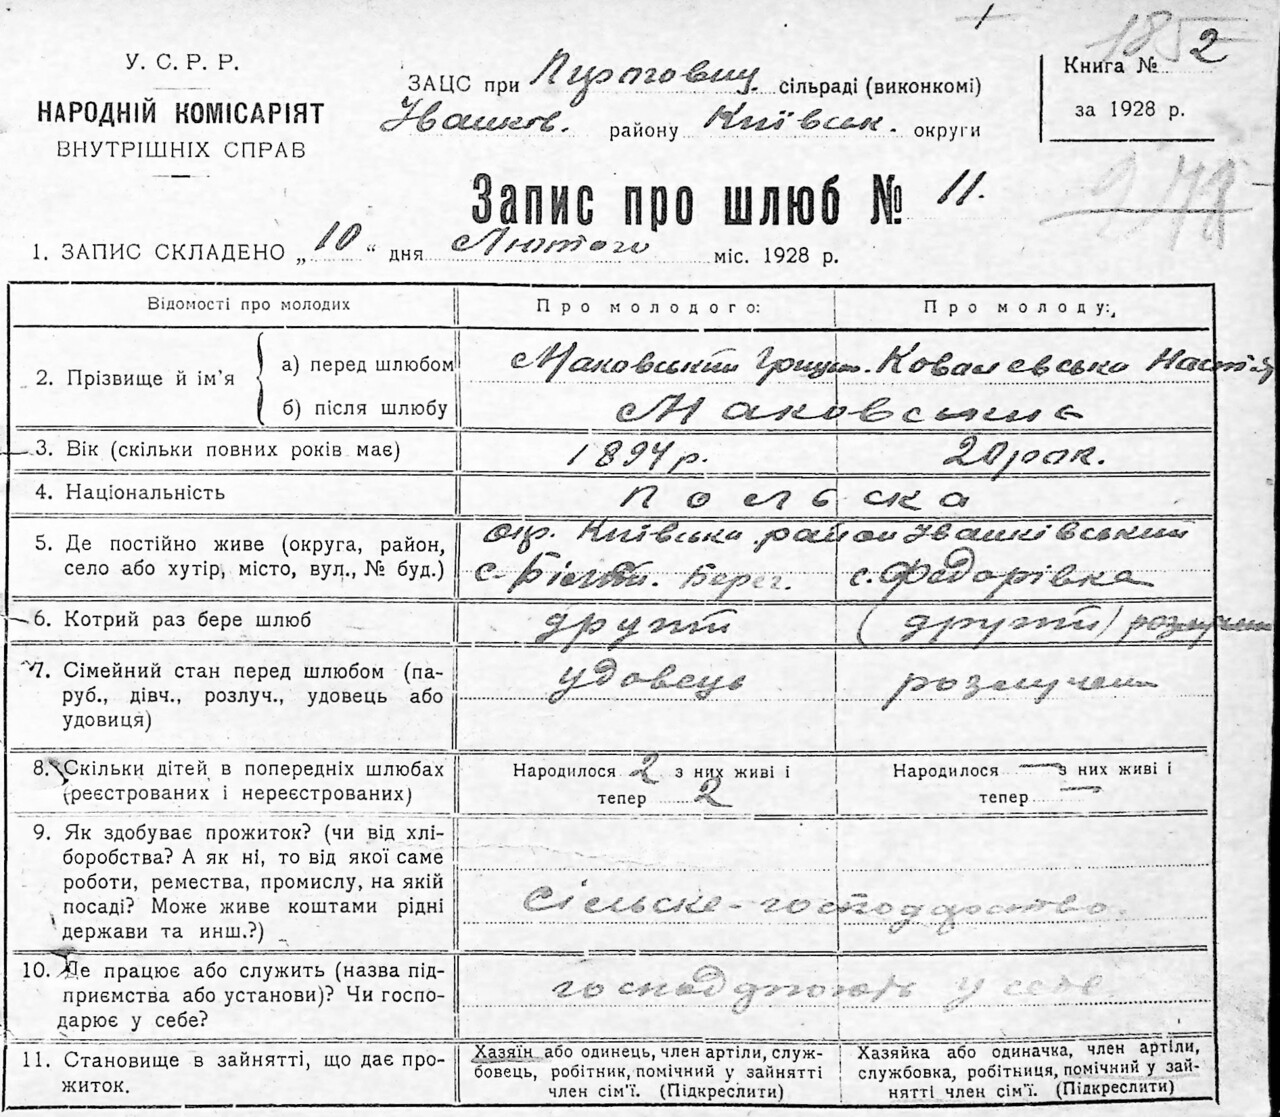 1852
У. С. Р. Р.
НАРОДНІЙ КОМІСАРІЯТ
ВНУТРІШНІХ СПРАВ
ЗАЦС при сільраді (виконкомі)
Івашков. району Київськ. округи
Книга № 2
за 1928 р.
Запис про шлюб № 11.
1. ЗАПИС СКЛАДЕНО „10“ дня Лютого міс. 1928 р.
Відомості про молодих
Про молодого:
Про молоду:
2. Прізвище й ім’я
а) перед шлюбом
Маковський Ковалевська
б) після шлюбу
Маковський
3. Вік (скільки повних років має)
1894 р.
20 рок.
4. Національність
Польска
5. Де постійно живе (округа, район,
село або хутір, місто, вул., № буд.)
окр. Київська район Івашківський
с. Берег.
с. Федорівка
6. Котрий раз бере шлюб
другий
(другий)
7. Сімейний стан перед шлюбом (па-
руб., дівч., розлуч., удовець або
удовиця)
удовець
розлучена
8. Скільки дітей в попередніх шлюбах
(реєстрованих і нереєстрованих)
Народилося 2 з них живі і
тепер 2
Народилося — з них живі і
тепер —
9. Як здобуває прожиток? (чи від хлі-
боробства? А як ні, то від якої саме
роботи, ремества, промислу, на якій
посаді? Може живе коштами рідні
держави та инш.?)
Сільске-господарство.
10. Де працює або служить (назва під-
приємства або установи)? Чи госпо-
дарює у себе?
господарюють у себе
11. Становище в зайнятті, що дає про-
житок.
Хазяїн або одинець, член артіли, служ-
бовець, робітник, помічний у зайнятті
член сім’ї. (Підкреслити)
Хазяйка або одиначка, член артіли,
службовка, робітниця, помічний у зай-
нятті член сім’ї. (Підкреслити)